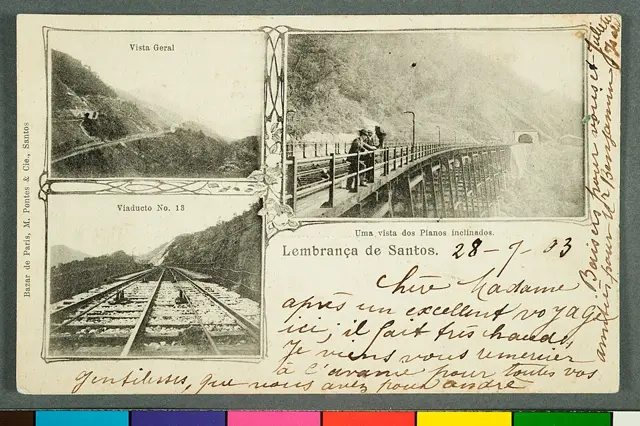 Vista Geral
Viaducto No. 13
Uma vista dos Planos inclinados.
Lembrança de Santos.
Bazar de Paris, M. Pontes & Cie., Santos
28-7-03
Chère Madame
après un excellent voyage
ici; il fait très chaud,
Je viens vous remercier
à l'avance pour toutes vos
gentilesses, que vous avez pour andré
Baisers pour vous et
amitiés pour Mr Benjamin